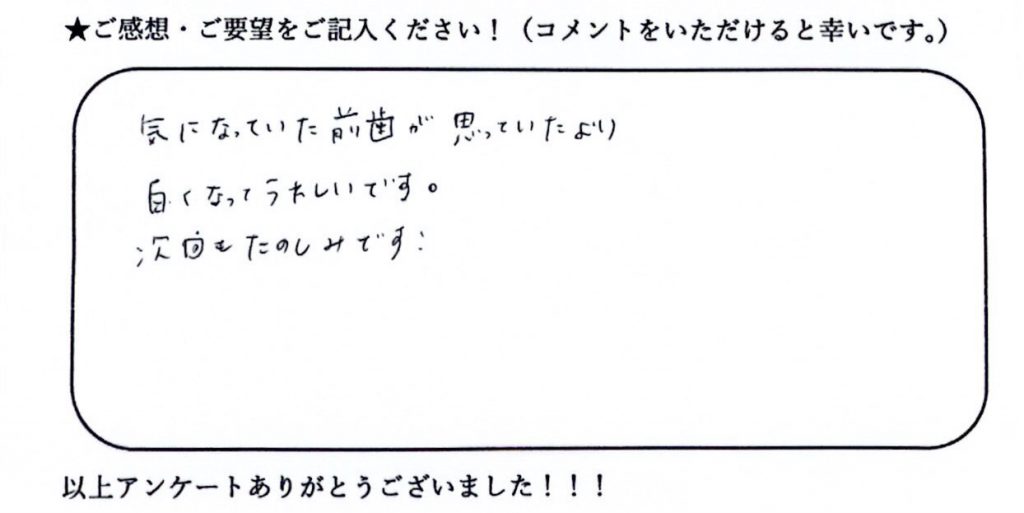 ★ご感想・ご要望をご記入ください！（コメントをいただけると幸いです。）
気になっていた前歯が思っていたより
白くなってうれしいです。
次回もたのしみです！
以上アンケートありがとうございました！！！